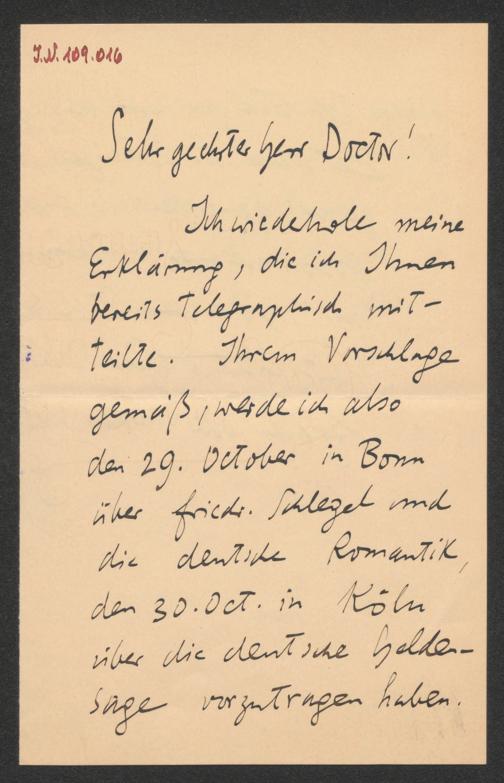 J.N. 109.016
Sehr geehrter Herr Doctor!
Ich wiederhole meine
Erklärung, die ich Ihnen
bereits telegraphisch mit-
teilte. Ihrem Vorschlage
gemäß, werde ich also
den 29. October in Bonn
über Friedr. Schlegel und
die deutsche Romantik,
den 30. Oct. in Köln
über die deutsche Helden-
sage vorzutragen haben.